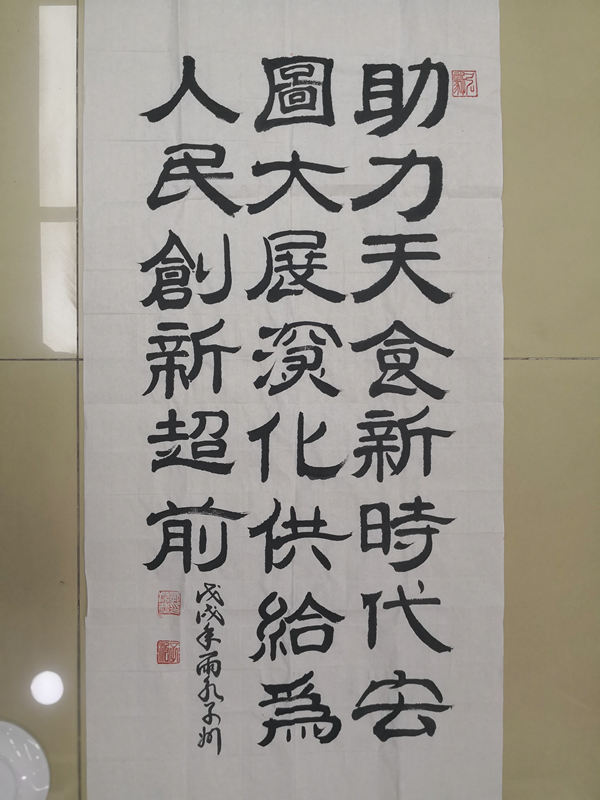 助力天食新時代宏
圖大展深化供給爲
人民創新超前
戊戌年雨水子州